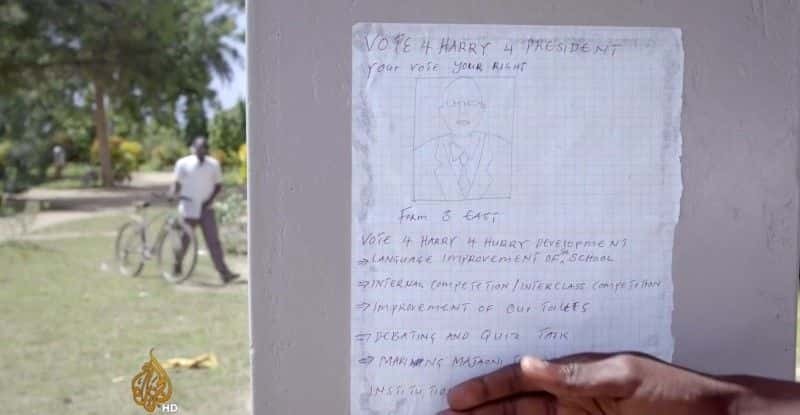 VOTE 4 HARRY 4 PRESIDENT
YOUR VOTE YOUR RIGHT
FORM 3 EAST
VOTE 4 HARRY 4 HURRY DEVELOPMENT
⇒ LANGUAGE IMPROVEMENT OF SCHOOL
⇒ INTERNAL COMPETETION / INTERCLASS COMPETETION
⇒ IMPROVEMENT OF OUR TOILETS
⇒ DEBATING AND QUIZ TALK
⇒ MAKING MAJAONI
INSTITUTIO
HD